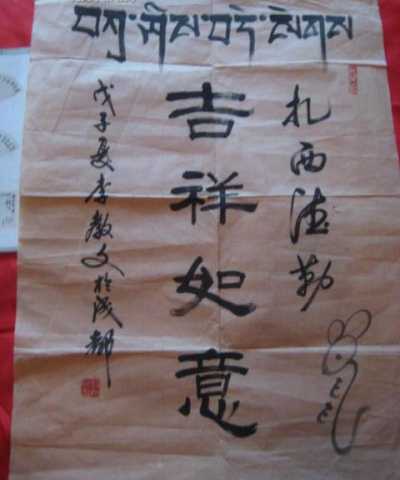 བཀྲ་ཤིས་བདེ་ལེགས
扎西德勒
吉祥如意
戊子夏李教文於成都